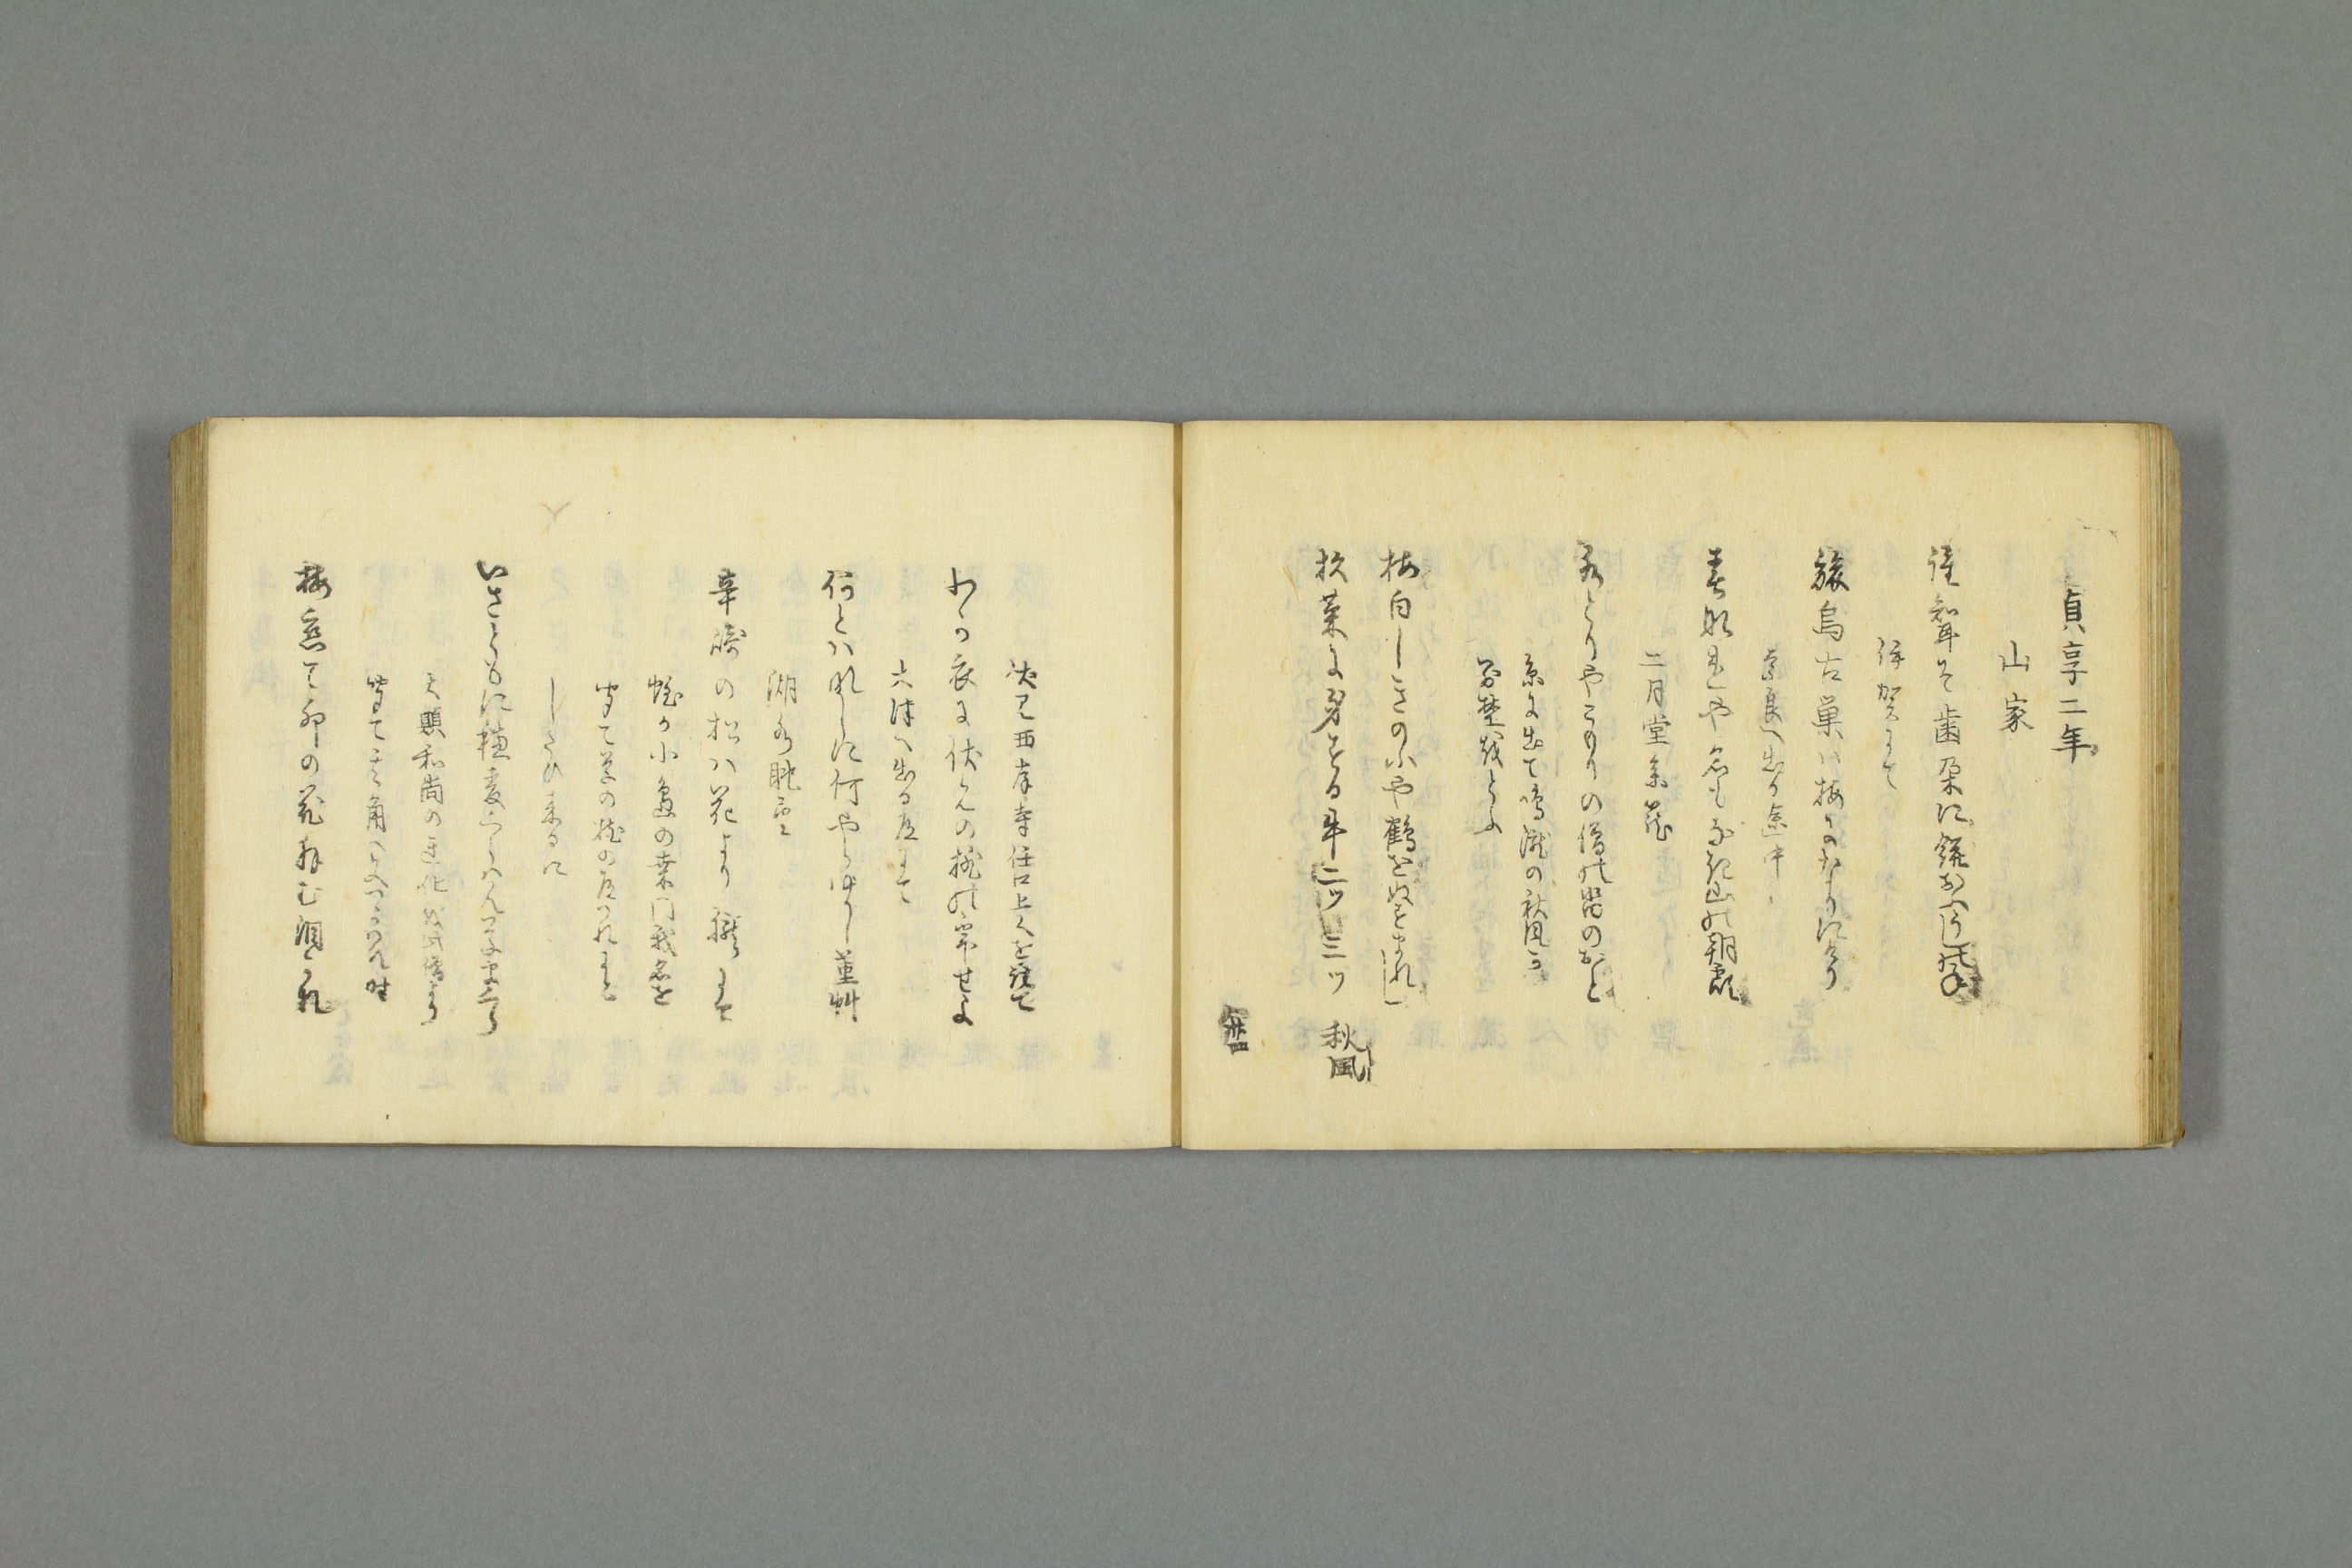 貞享二年
山家
誰聟そ歯朶に餅おふうしの年
伊賀にて
旅烏古巣は梅になりにけり
奈良へ出る途中
春なれや名もなき山の朝霞
二月堂参籠
水とりやこもりの僧の沓のおと
京に出て鳴瀧の秋風か
梅白しきのふや鶴をぬすまれし
杉菜に身をする牛二ツ三ツ　秋風
伏見西岸寺任口上人を
わか衣に伏見の桃の雫せよ
大津へ出る道にて
何とはなしに何やらゆかし菫艸
湖水眺望
辛崎の松は花より朧にて
蛭か小島の桑門我名を
聞て草の枕の道つれにと
したひ来るに
いさともに穂麦くらはん草まくら
大顛和尚の遷化
聞て其角へ
梅恋て卯の花拝む涙かな